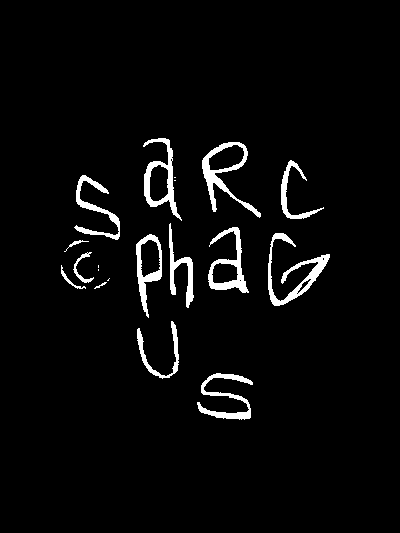 saRC
©phaG
US